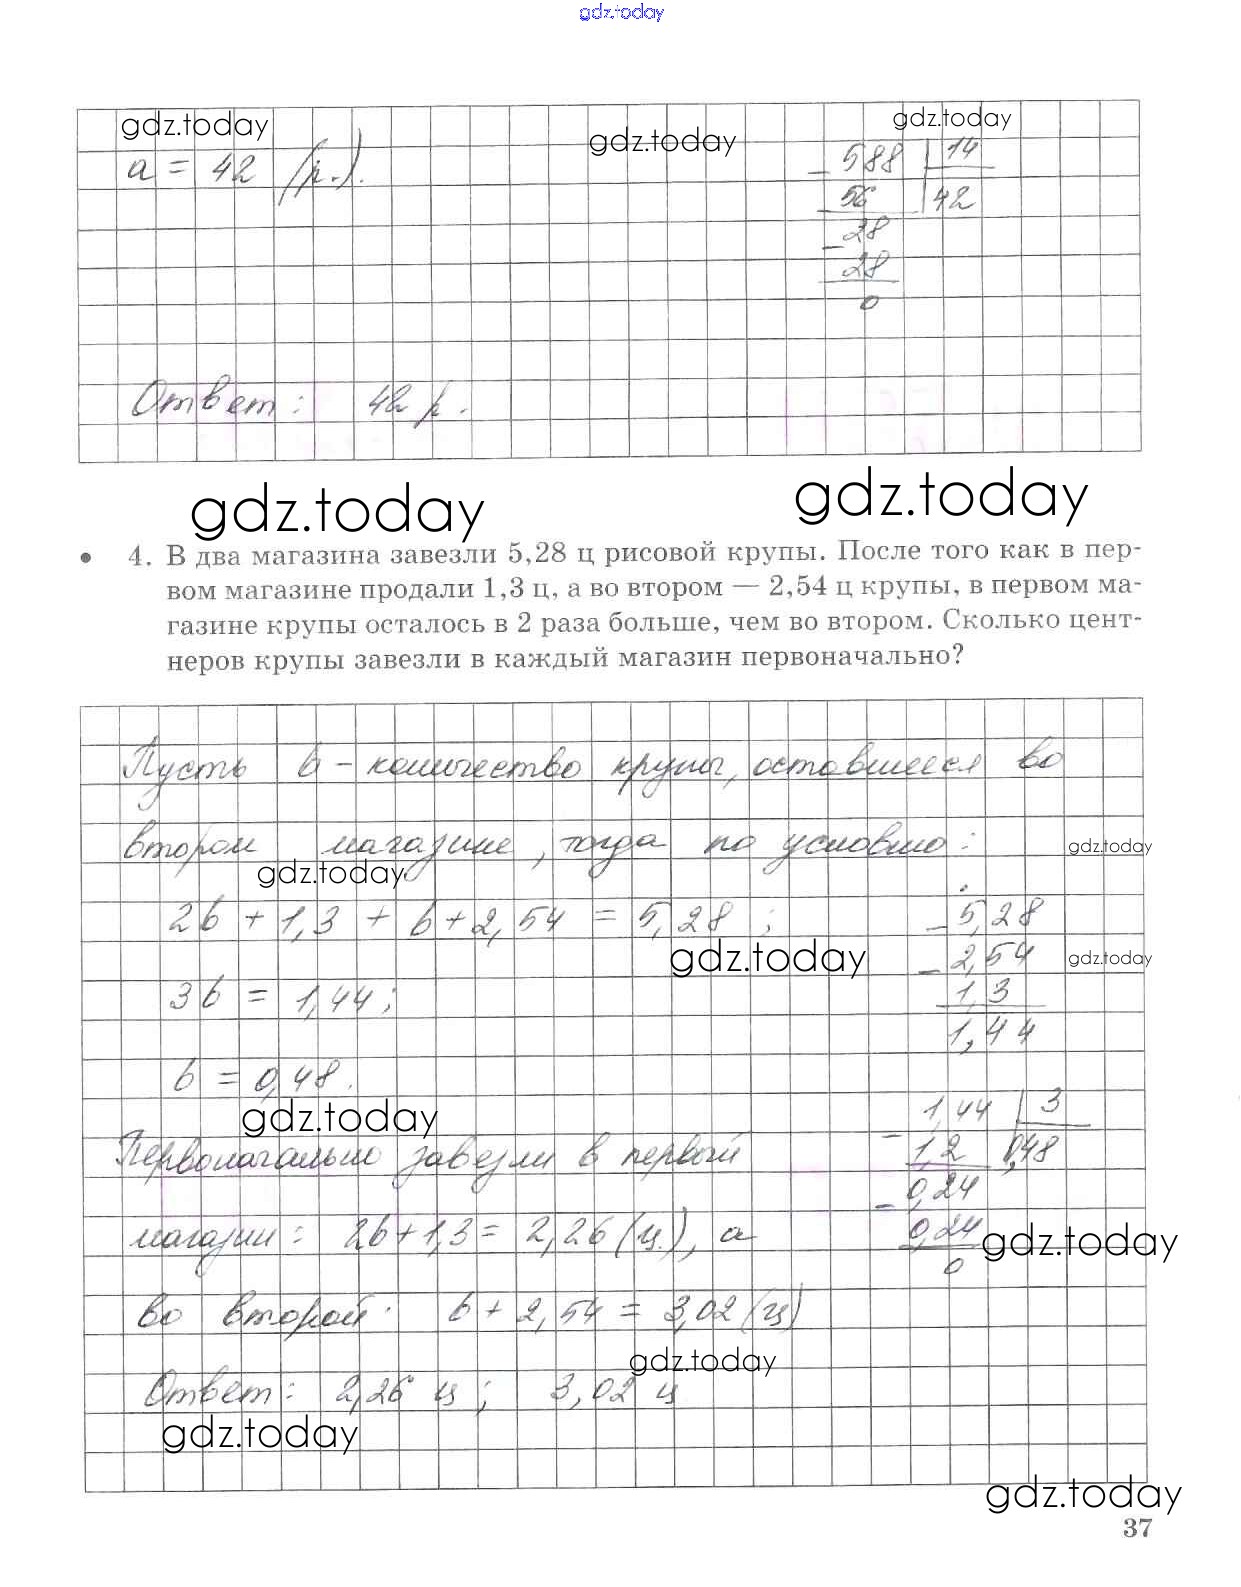 gdz.today
gdz.today
gdz.today
gdz.today
a = 42 (р.).
588 | 14
56 | 42
28
28
0
Ответ: 42 р.
gdz.today
gdz.today
4. В два магазина завезли 5,28 ц рисовой крупы. После того как в пер-
вом магазине продали 1,3 ц, а во втором — 2,54 ц крупы, в первом ма-
газине крупы осталось в 2 раза больше, чем во втором. Сколько цент-
неров крупы завезли в каждый магазин первоначально?
Пусть b - количество крупы, оставшееся во
втором магазине, тогда по условию:
gdz.today
gdz.today
2b + 1,3 + b + 2,54 = 5,28 ;
- 5,28
gdz.today
- 2,54
gdz.today
3b = 1,44;
1,3
1,44
b = 0,48.
gdz.today
- 1,44 | 3
1,2 0,48
Первоначально завезли в первый
- 0,24
магазин: 2b + 1,3 = 2,26 (ц.), а
0,24
gdz.today
0
во второй: b + 2,54 = 3,02 (ц)
gdz.today
Ответ: 2,26 ц ; 3,02 ц
gdz.today
gdz.today
37